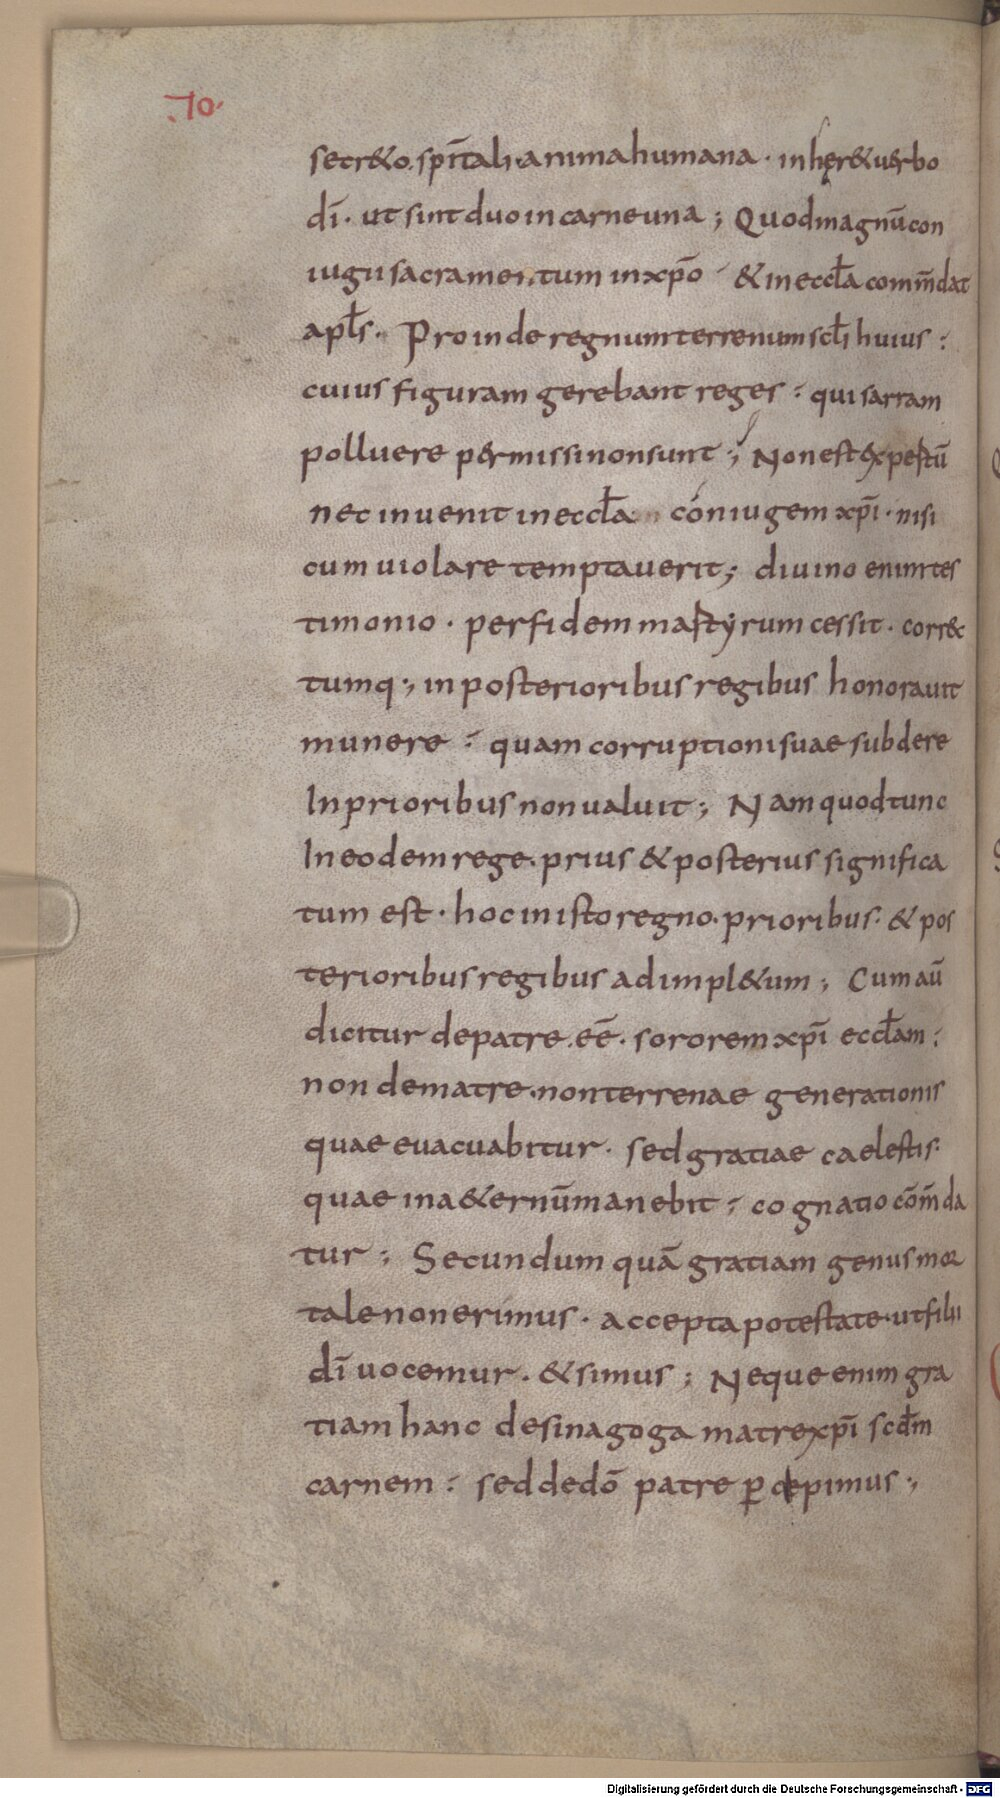 .70.
secr&o. spīitali. anima humana · inher& uerbo
dī · ut sint duo in carne una ; Quod magnū con
iugii sacramentum in xp̄o · & in eccƚa com̄dat
apƚs · Proinde regnum terrenum scƚi huius :
cuius figuram gerebant reges : qui sarram
polluere permissi non sunt ; Non est expertū
nec inuenit in eccƚa coniugem xp̄i · nisi
cum uiolare temptauerit ; diuino enim tes
timonio · per fidem martyrum cessit · correc
tumq ; in posterioribus regibus honorauit
munere : quam corruptioni suae subdere
In prioribus non ualuit ; Nam quod tunc
In eodem rege · prius & posterius significa
tum est · hoc in isto regno · prioribus · & pos
terioribus regibus adimpl&um ; Cum aū
dicitur de patre . eē · sororem xp̄i eccƚam :
non de matre · non terrenae generationis
quae euacuabitur · sed gratiae caelestis ·
quae in a&ernūm manebit : cognatio cōm̄da
tur ; Secundum quā gratiam genus mor
tale non erimus · accepta potestate · ut filii
dī uocemur · & simus ; Neque enim gra
tiam hanc de sinagoga matre xp̄i scd̄m
carnem : sed de dō patre ꝑcepimus ;
Digitalisierung gefördert durch die Deutsche Forschungsgemeinschaft - DFG